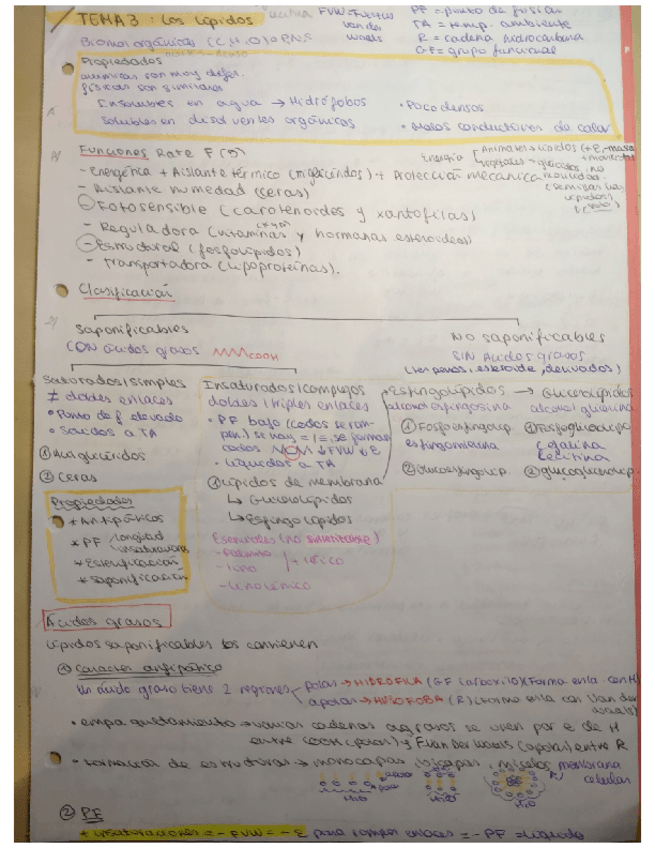 TEMA 3: Los lípidos
FVW = Fuerzas van der waals
PF = punto de fusión
TA = temp. ambiente
R = cadena hidrocarbona
GF = grupo funcional
Biomol orgánicas (C,H,O) o P,N,S
Propiedades
químicas son muy
físicas son similares
Insolubles en agua → Hidrófobos
Solubles en disolventes orgánicos
• Poco densos
• Malos conductores de calor
Funciones
- Energética + Aislante térmico (triglicéridos) + Protección mecánica
- Aislante humedad (ceras)
- Fotosensible (carotenoides y xantofilas)
- Reguladora (vitaminas y hormonas esteroideas)
- Estructural (fosfolípidos)
- Transportadora (lipoproteínas).
Clasificación
Saponificables
CON ácidos grasos COOH
No saponificables
SIN ácidos grasos
(terpenos, esteroide, derivados)
Saturados/simples
≠ dobles enlaces
• Punto de f elevado
• Sólidos a TA
① Acilglicéridos
② Ceras
Insaturados/complejos
dobles/triples enlaces
• PF bajo
codos ↓ FVW
• líquidos a TA
③ Lípidos de membrana
↳ Glicerolípidos
↳ Esfingolípidos
Esenciales (no
- linolénico
Esfingolípidos → Glicerolípidos
alcohol esfingosina
alcohol glicerina
① Fosfoesfingolíp.
esfingomielina
② Glucoesfingolíp.
① Fosfoglicerolíp
cefalina
lecitina
② glucoglicerolíp.
Propiedades
* Anfipáticos
* PF longitud
insaturaciones
* Esterificación
* Saponificación
Ácidos grasos
Lípidos saponificables los contienen
① Carácter anfipático
Un ácido graso tiene 2 regiones
polar → HIDROFILA (GF carboxilo) (Forma enla. con H)
apolar → HIDROFOBA (R) (Forma enla con Van der waals)
• empaquetamiento → varias cadenas ag grasos se unen por e de H
entre COOH (polar) y F van Der Waals (apolar) entre R
• Formación de estructuras → monocapas, bicapas, micelas
membrana celular
H₂O
H₂O
H₂O
② PF
+ insaturaciones = - FVW = - E para romper enlaces = - PF = líquido